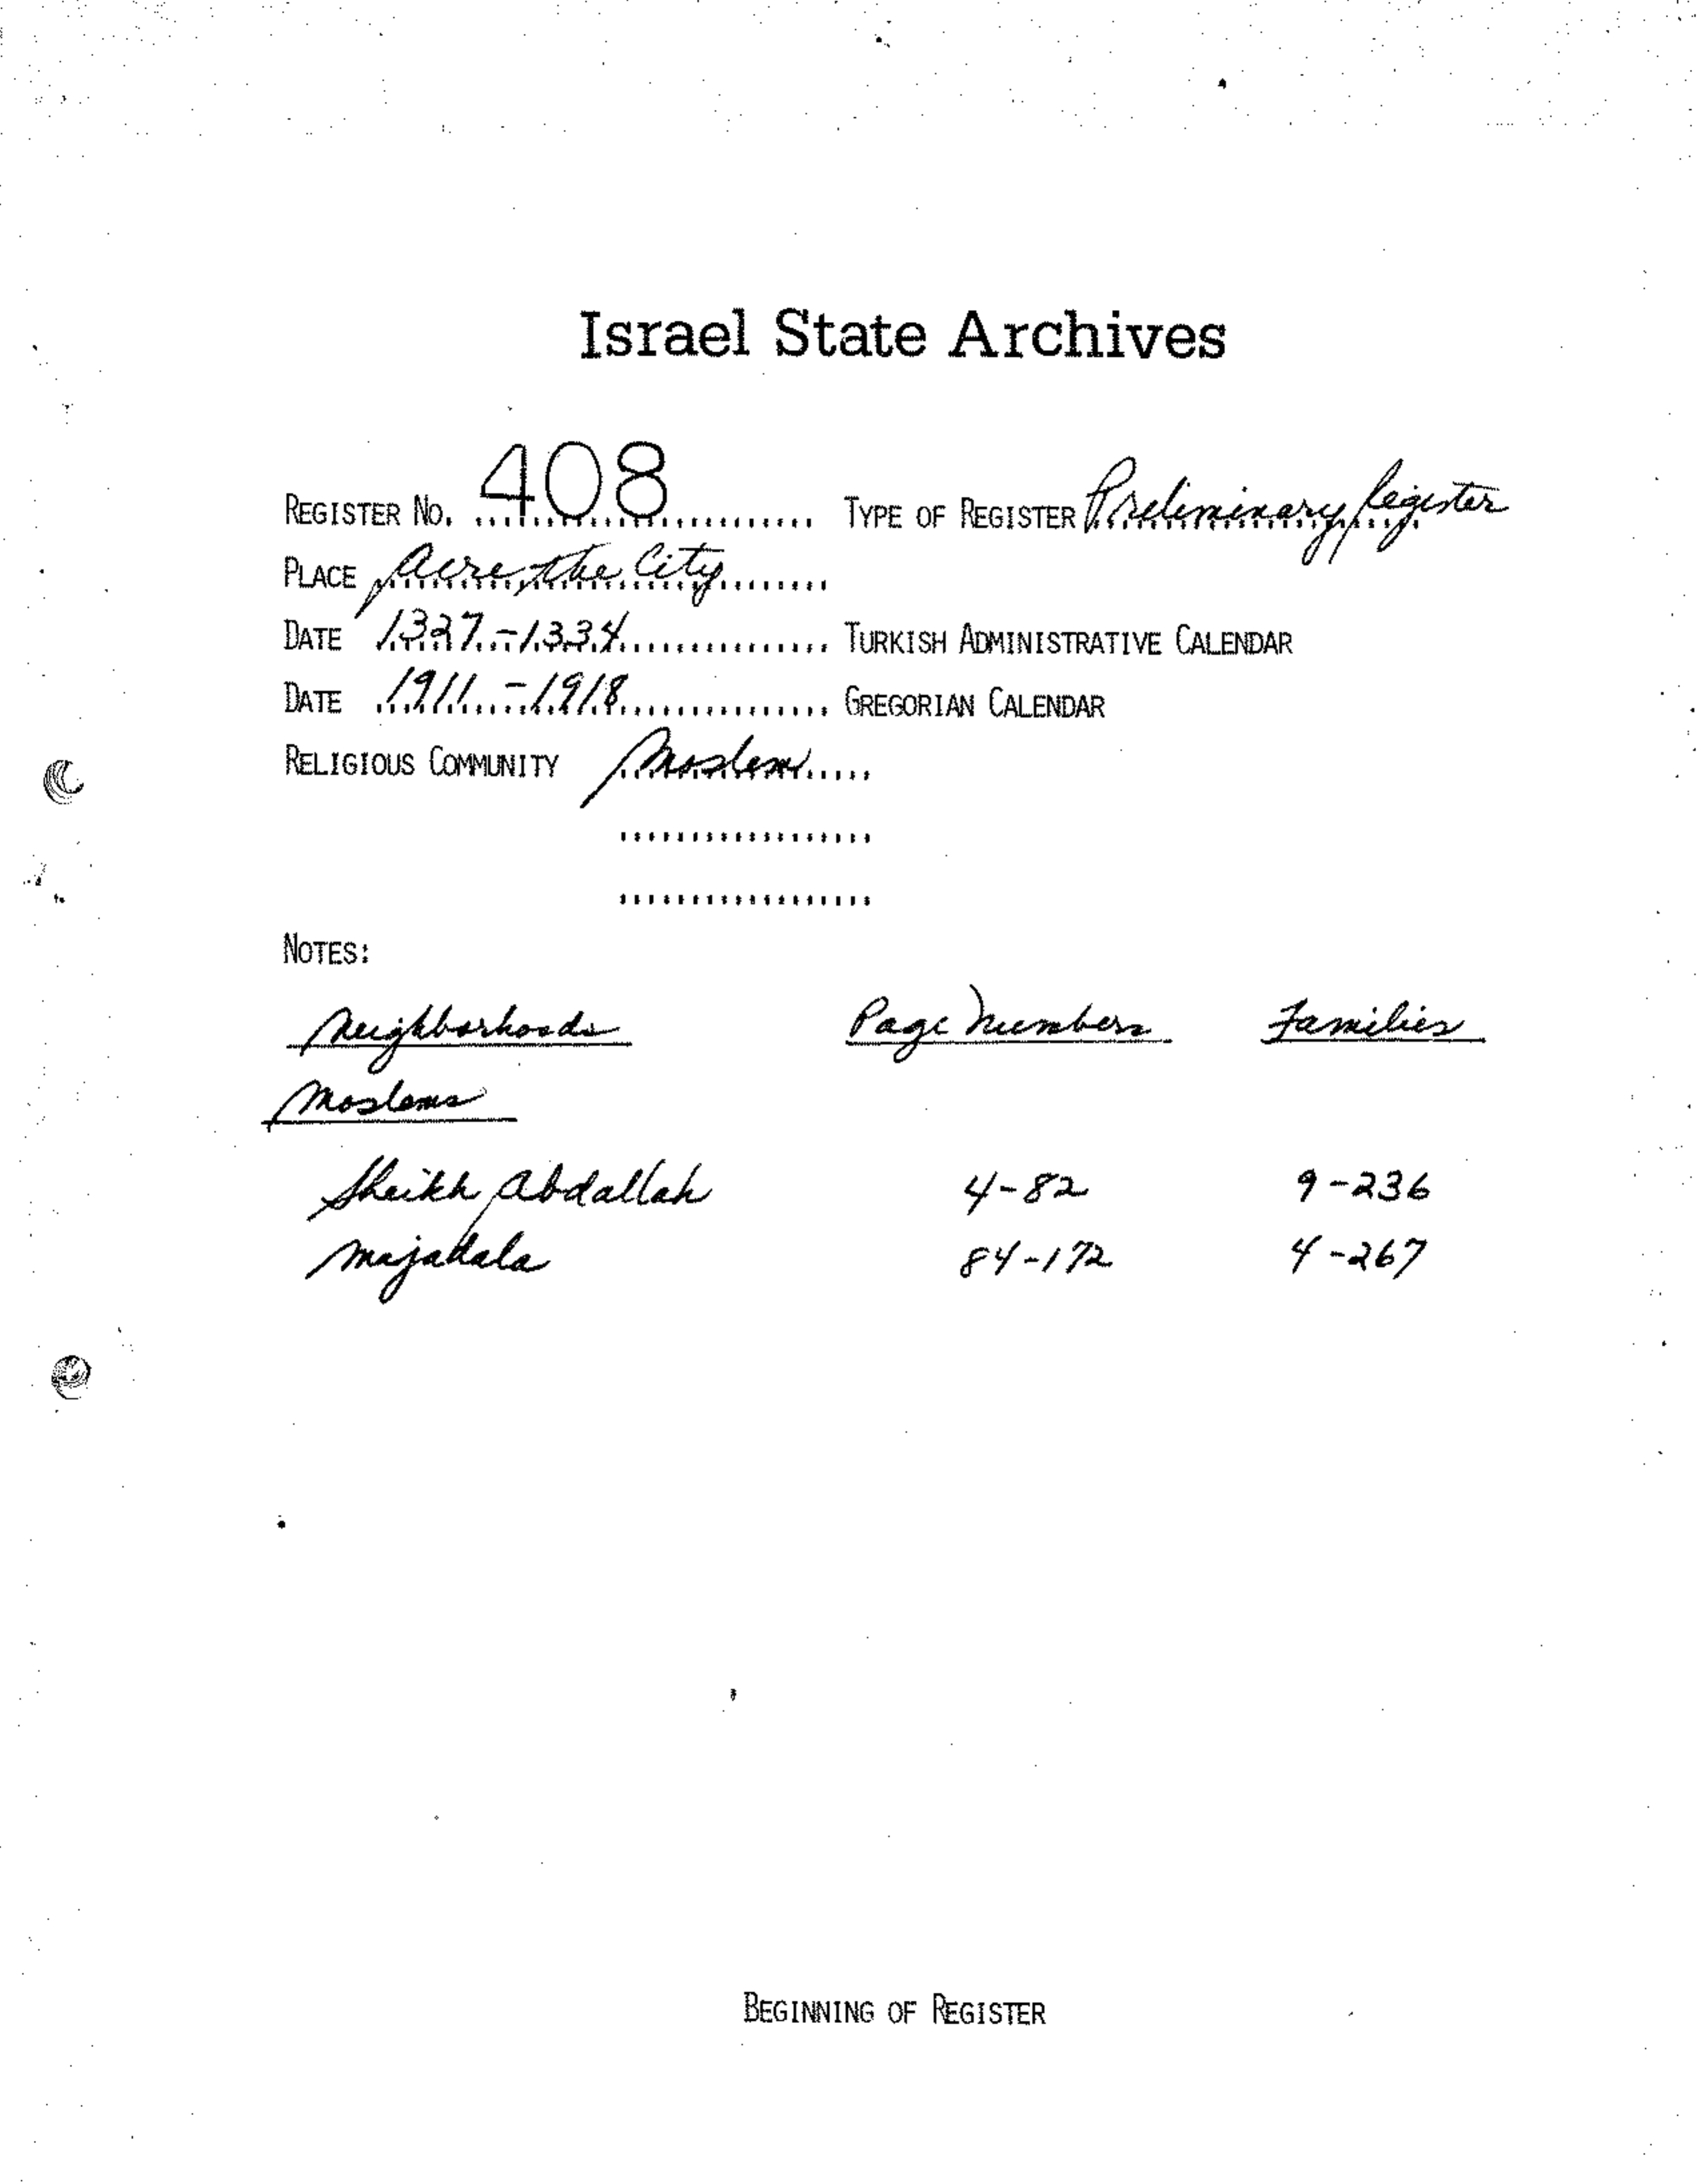 Israel State Archives
REGISTER NO. 408 TYPE OF REGISTER Preliminary Register
PLACE Acre, the City
DATE 1327-1334 TURKISH ADMINISTRATIVE CALENDAR
DATE 1911-1918 GREGORIAN CALENDAR
RELIGIOUS COMMUNITY Moslem
NOTES:
Neighborhoods Page Numbers Families
Moslems
Sheikh Abdallah 4-82 9-236
Majadala 84-172 4-267
BEGINNING OF REGISTER